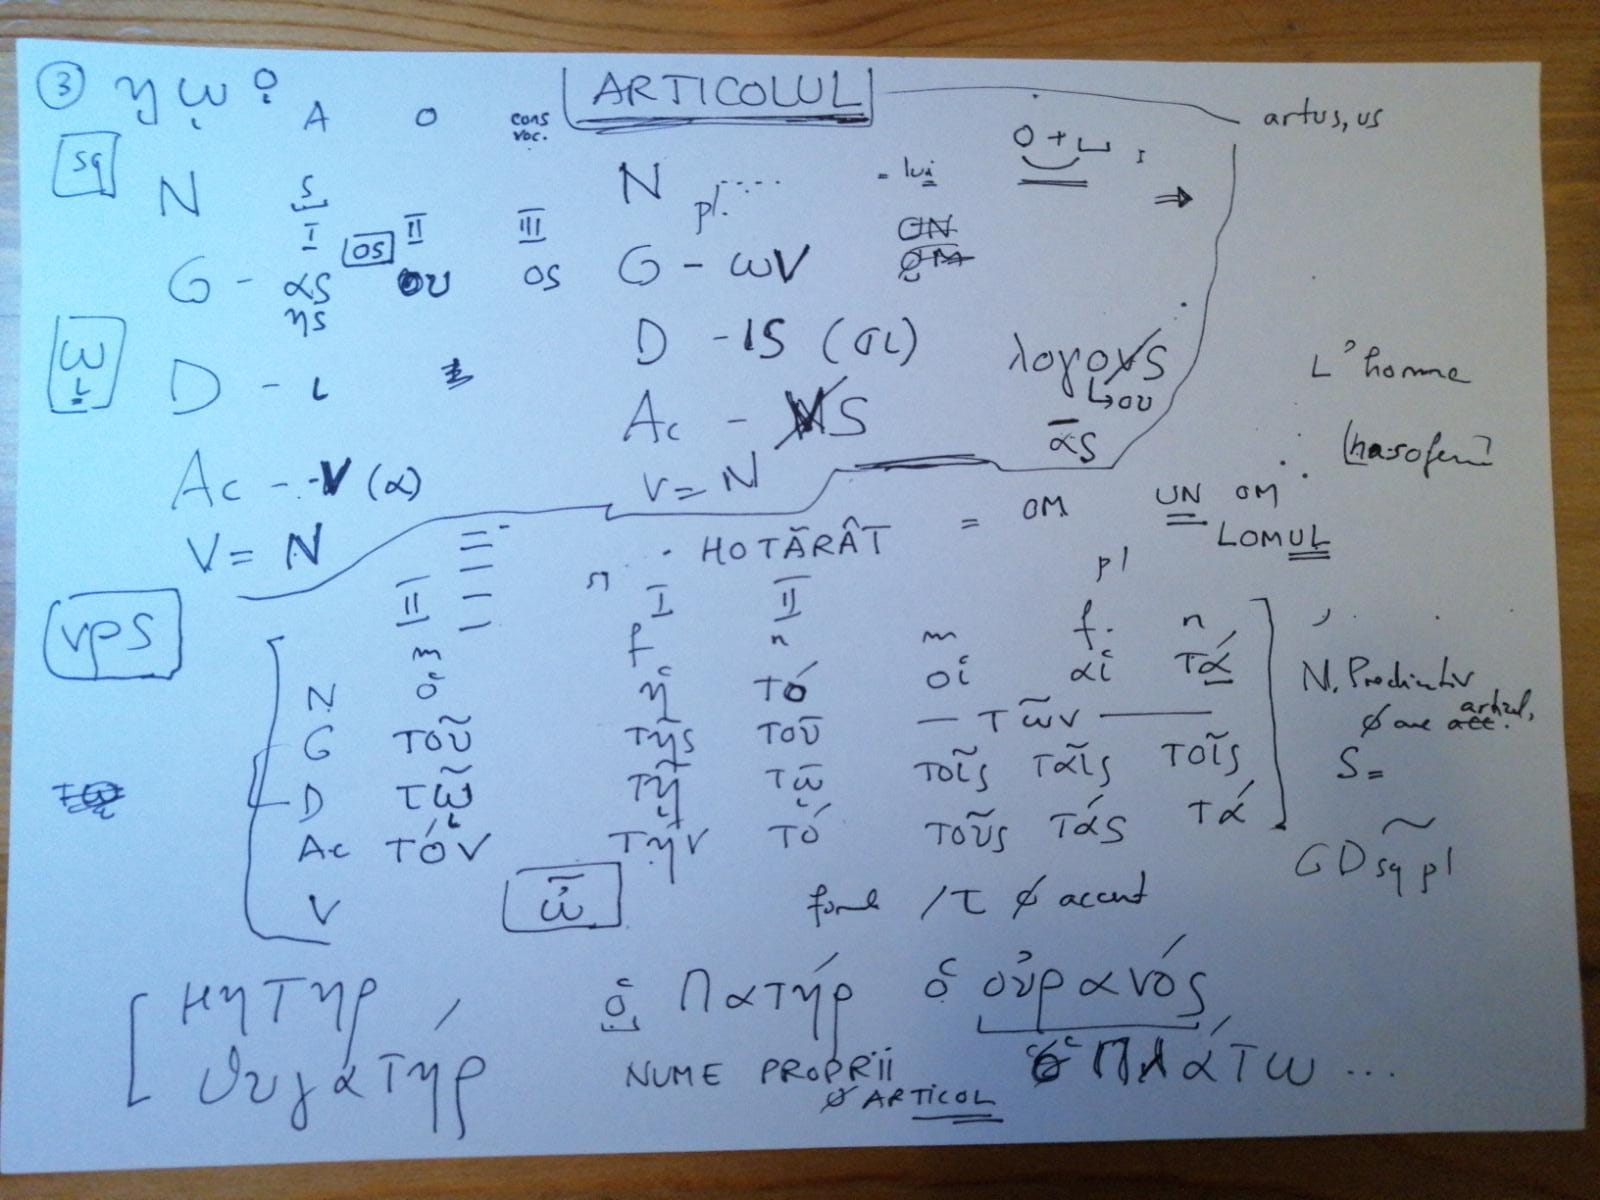 ③ ῃ ῳ ARTICOLUL artus, us
A O cons voc.
sg
N ς
I II III
G - ας ος ου ος
ης
ῳ
D - ι
Ac - ν (α)
V = N
N pl. = lui
G - ων
D - ις (σι)
Ac - NS
V = N
λογονς
↳ου
ᾱς
L'homme
HOTĂRÂT = OM UN OM
LOMUL
pl
II I II
m f n m f. n
N ὁ ἡ τό οἱ αἱ τά
G τοῦ τῆς τοῦ — τῶν —
D τῷ τῇ τῷ τοῖς ταῖς τοῖς
Ac τόν τήν τό τοῦς τάς τά
V ὦ
N. Predicativ
ø are articol,
S =
GD sg pl
ø accent
μητηρ ὁ Πατήρ ὁ οὐρανός
θυγάτήρ NUME PROPRII ὁ Πλάτω ...
ø ARTICOL